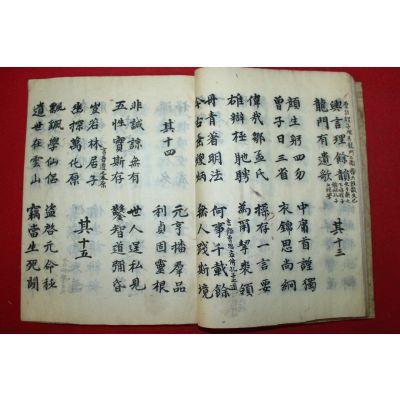 興言理餘韻
龍門有遺歌
其十三
顏生躬四勿
曾子日三省
中庸首謹獨
衣錦思尚絅
偉哉鄒孟氏
雄辯極馳騁
操存一言要
為爾挈裘領
丹青著明法
今古垂煥炳
何事千載餘
無人踐斯境
其十四
元亨播群品
利貞固靈根
非誠諒無有
五性實斯存
世人逞私見
鑿智道彌昏
豈若林居子
幽探萬化原
其十五
飄颻學仙侶
遺世在雲山
盜啓元命秘
竊當生死關